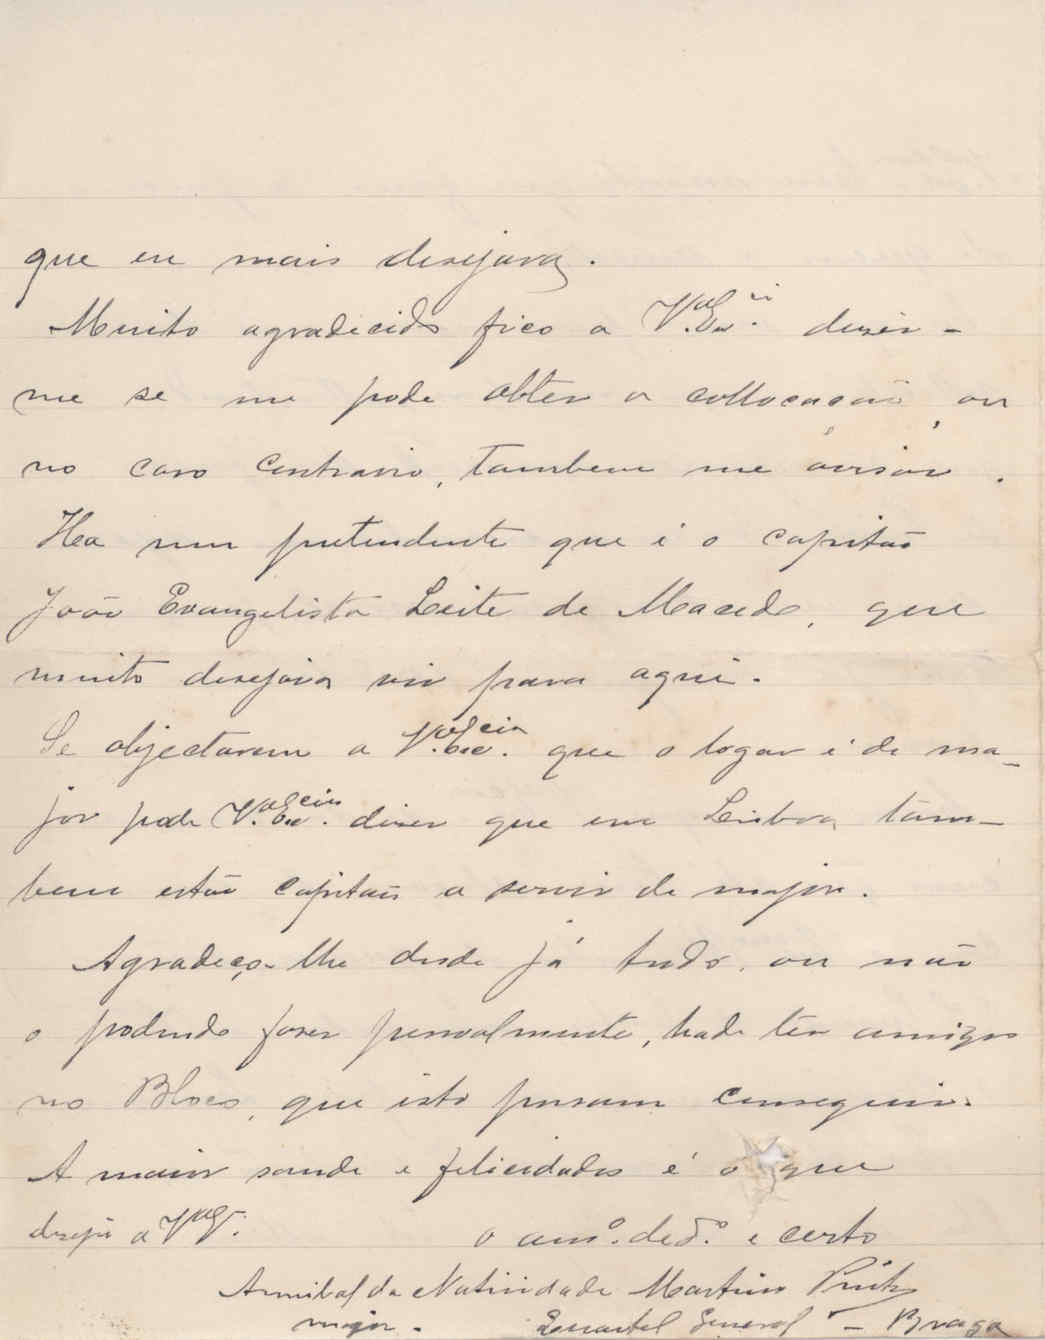 que eu mais desejava.
Muito agradecido fico a V. Ex.ª dizer-
me se me pode obter a collocação, ou
no caso contrario, tambem me avisar.
Ha um pretendente que é o capitão
João Evangelista Leite de Macedo, que
muito desejava vir para aqui.
Se objectarem a V. Ex.cia que o logar é de ma-
jor pode V. Ex.cia dizer que em Lisboa tam-
bem estão capitães a servir de major.
Agradeço-lhe desde já tudo, ou não
o podendo fazer pessoalmente, hade ter amigos
no Bloco, que isto possam conseguir.
A maior saude e felicidades é o que
desejo a V.
o am.º ded.º e certo
Annibal da Natividade Martins
major.
Quartel General - Braga